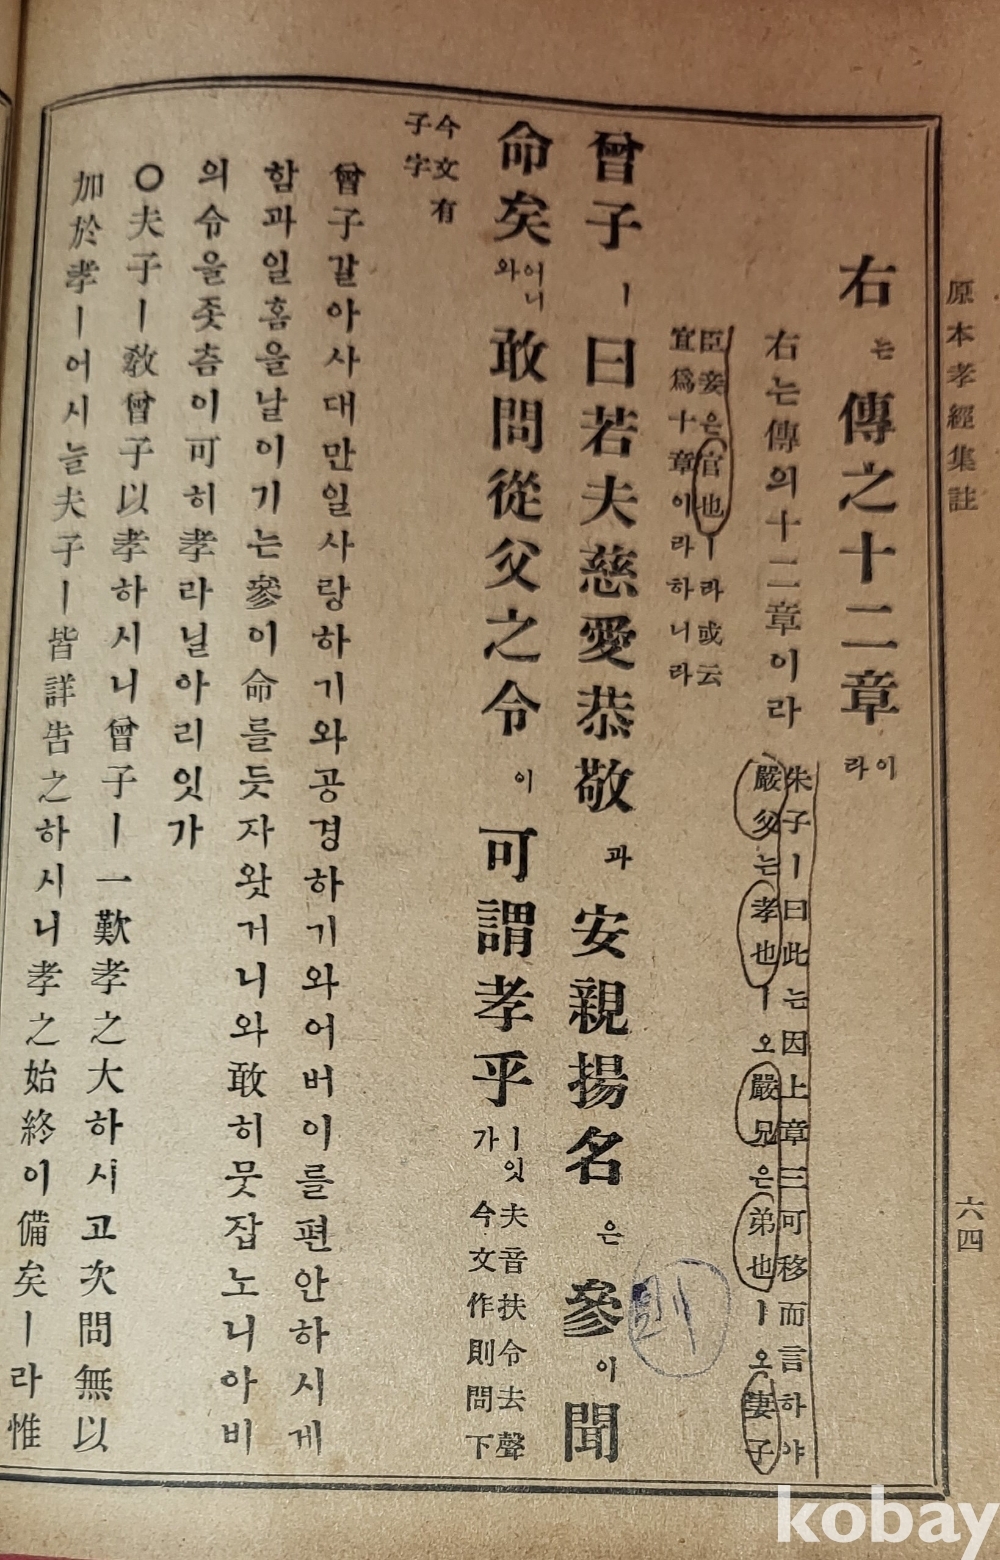 原本孝經集註
六四
右는傳之十二章이라
右는傳의十二章이라
朱子ㅣ曰此는因上章三可移而言하야
嚴父는孝也ㅣ오嚴兄은弟也ㅣ오妻子
臣妾은官也ㅣ라或云
宜爲十章이라하니라
曾子ㅣ曰若夫慈愛恭敬과安親揚名은參이聞
則
命矣어니와敢問從父之令이可謂孝乎ㅣ잇가
夫音扶令去聲
今文作則問下
今文有
子字
曾子갈아사대만일사랑하기와공경하기와어버이를편안하시게
함과일홈을날이기는參이命를듯자왓거니와敢히뭇잡노니아비
의슈을좃츰이可히孝라닐아리잇가
○夫子ㅣ敎曾子以孝하시니曾子ㅣ一歎孝之大하시고次問無以
加於孝ㅣ어시늘夫子ㅣ皆詳告之하시니孝之始終이備矣ㅣ라惟
kobay